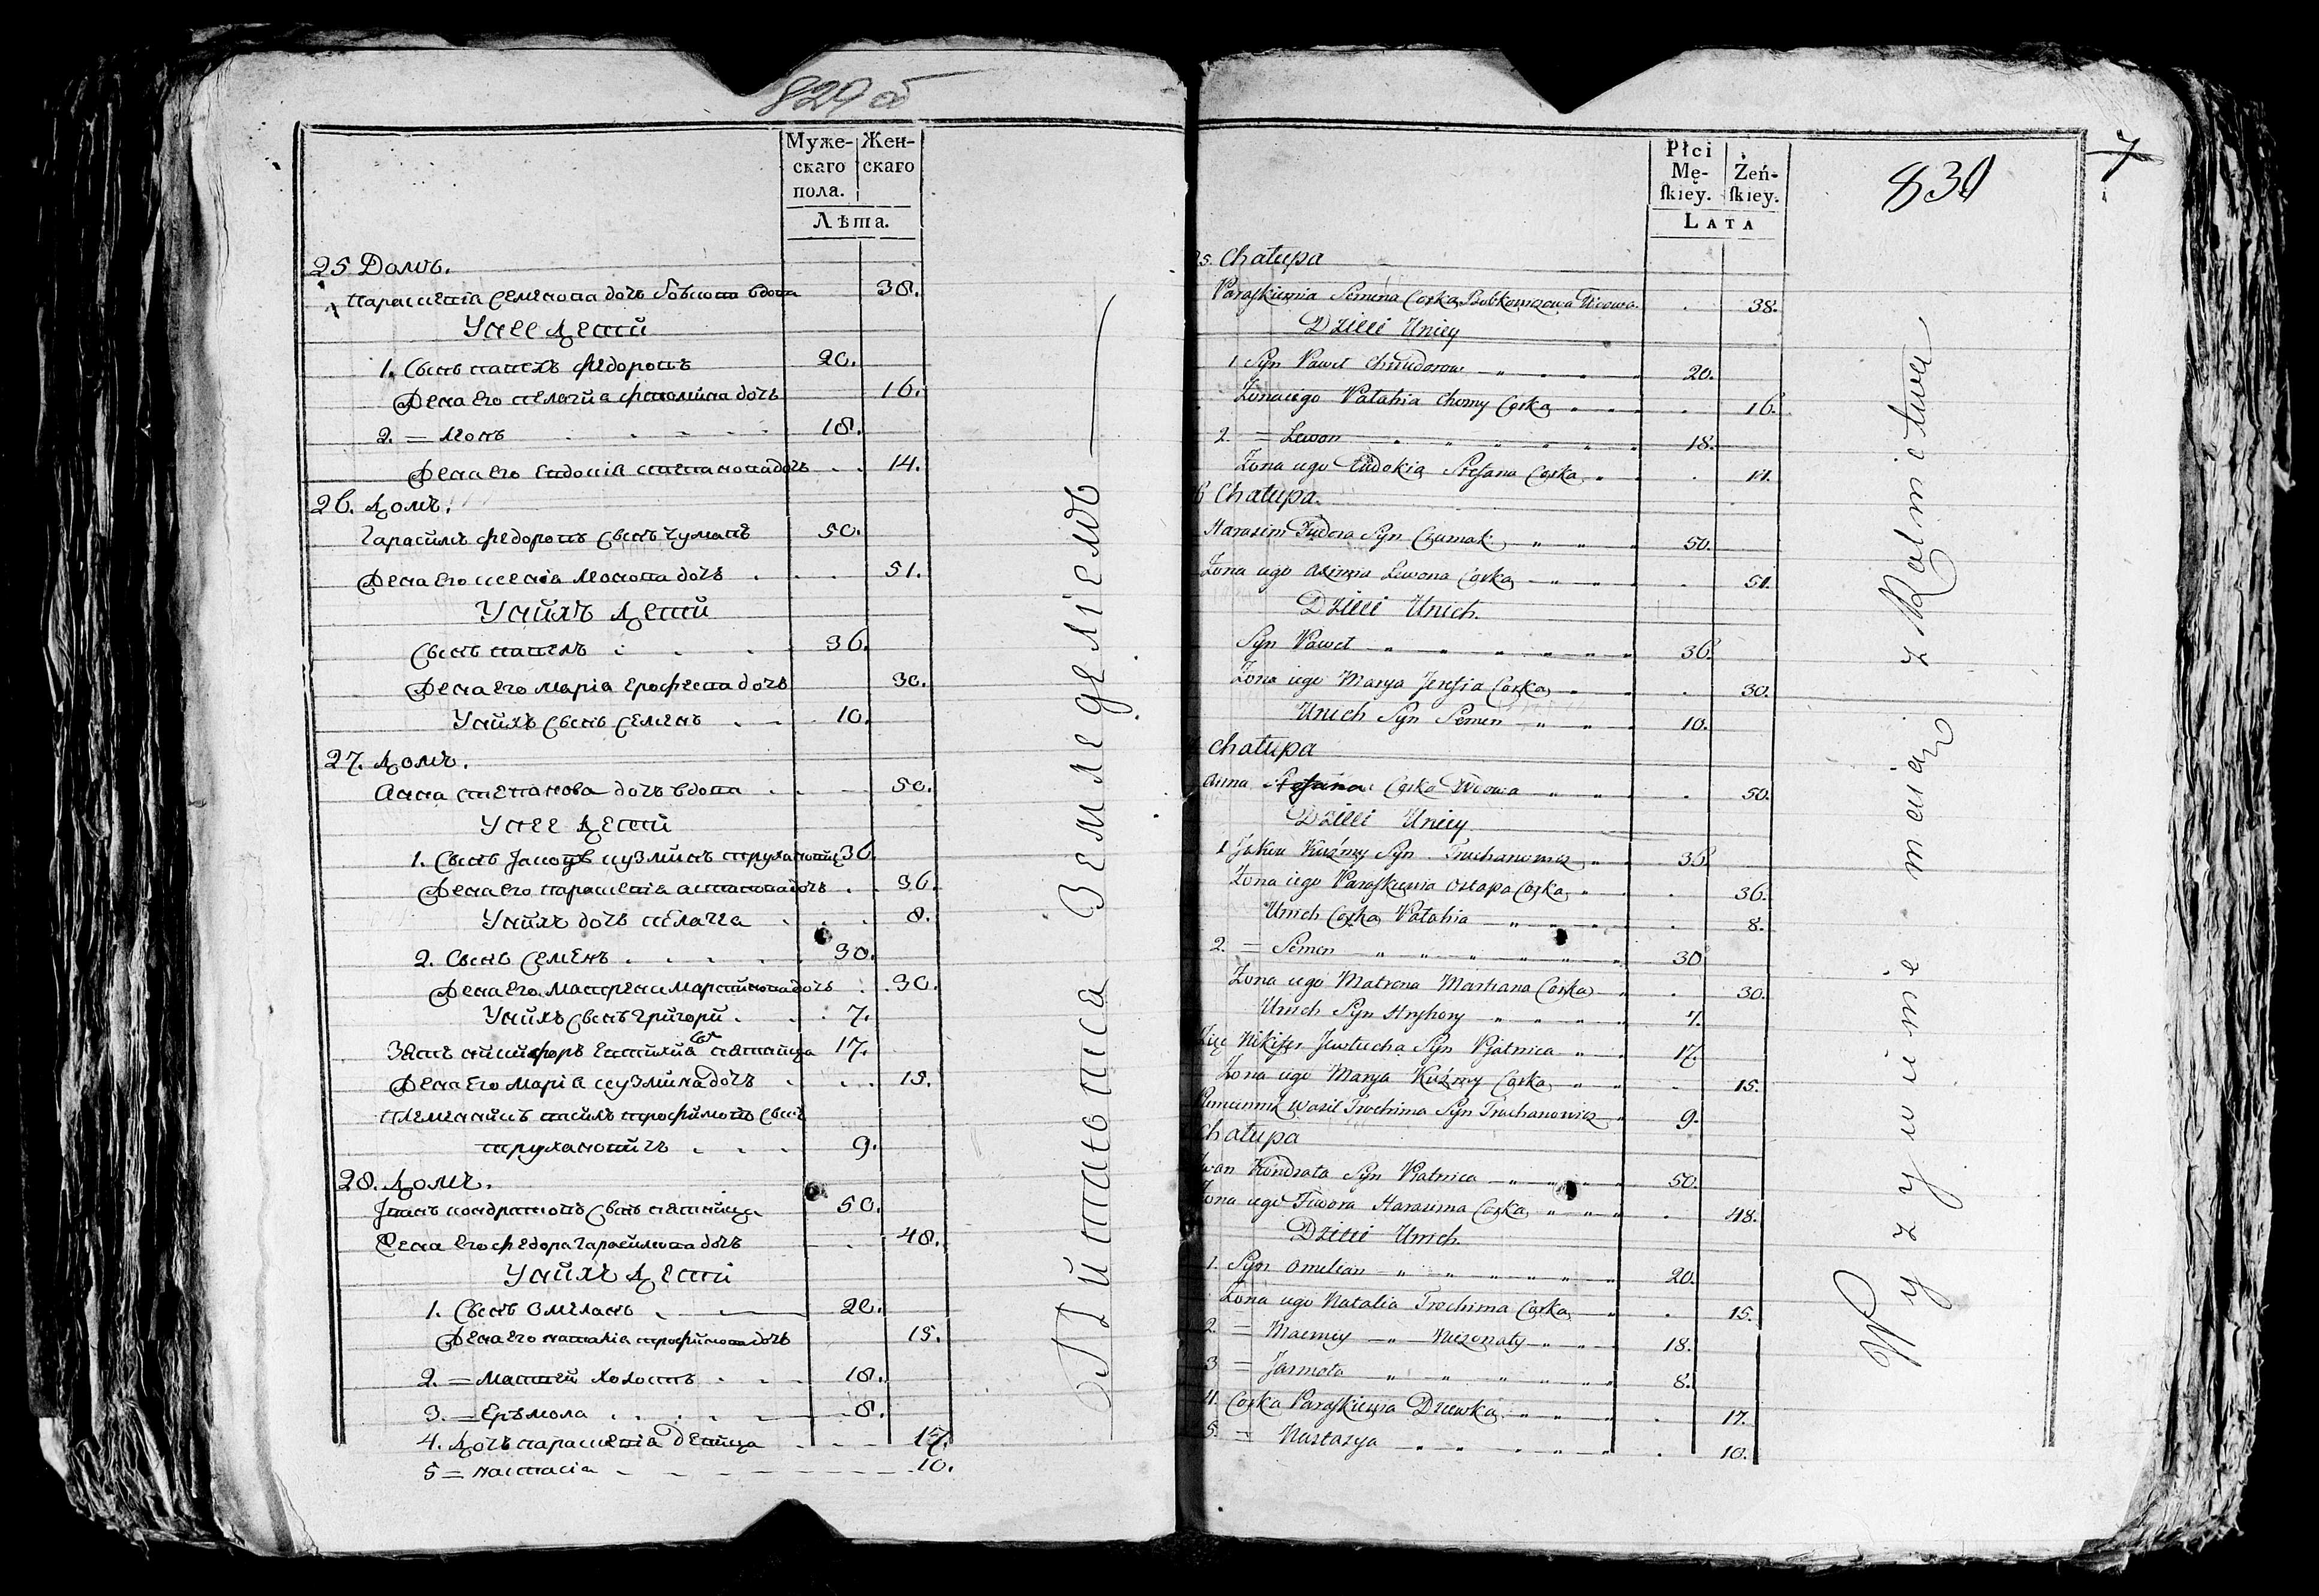 829 об
Муже-
скаго
пола.
Жен-
скаго
Лѣта.
25 Домъ.
Параскевіа Семенова дочь вдова 38.
У нее дети
1. Сынъ Павелъ Федоровъ 20.
Жена его Пелагиа Фомина дочь 16.
2. = Леонъ 18.
Жена его Евдокіа Степанова дочь 14.
26. Домъ.
Гарасимъ Федоровъ сынъ Чумакъ 50.
Жена его Ксеніа Леонова дочь 51.
У нихъ дети
Сынъ Павелъ 36.
Жена его Маріа Ерофеева дочь 30.
У нихъ сынъ Семенъ 10.
27. Домъ.
Анна Степанова дочь вдова 50.
У нее дети
1. Сынъ Іаковъ Кузминъ Трухановичъ 36.
Жена его Параскевіа Астапова дочь 36.
У нихъ дочь Пелагеа 8.
2. Сынъ Семенъ 30.
Жена его Матрена Мартинова дочь 30.
У нихъ сынъ Григори 7.
Зять Никифоръ Евтихиевъ Пятница 17.
Жена его Маріа Кузмина дочь 15.
Племенникъ Василъ Трофимовъ сынъ
Трухановичъ 9.
28. Домъ.
Іванъ Кондратовъ сынъ Пятница 50.
Жена его Федора Гарасимова дочь 48.
У нихъ дети
1. Сынъ Омелянъ 20.
Жена его Наталіа Трофимова дочь 15.
2. = Матвей холостъ 18.
3. = Ерьмола 8.
4. Дочь Параскевіа девица 17.
5 = Настасіа 10.
Питаются земледелiемъ
Płci
Mę-
skiey.
Żeń-
skiey.
LATA
830
7
25. Chałupa
Paraskiewia Semena Corka Bobkowiczowa Wdowa 38.
Dzieci Uniey
1 Syn Paweł Chwiedorow 20.
Żona iego Pałahia Chomy Corka 16.
2. = Lewon 18.
Żona iego Eudokia Stefana Corka 14.
6 Chałupa.
Harasim Fiedora Syn Czumak 50.
Żona iego Axinia Lewona Corka 51.
Dzieci Unich.
Syn Paweł 36.
Żona iego Marya Jerefia Corka 30.
Unich Syn Semen 10.
Chałupa
Anna Stefana Corka Wdowa 50.
Dzieci Uniey
1 Jakow Kuźmy Syn Truchanowicz 36.
Żona iego Paraskiewia Ostapa Corka 36.
Unich Corka Pałahia 8.
2. = Semen 30
Żona iego Matrona Marciana Corka 30.
Unich Syn Hryhory 7.
Zięć Nikifer Jewtucha Syn Piatnica 17.
Żona iego Marya Kuźmy Corka 15.
Plemiennik Wasil Trochima Syn Truchanowicz 9.
Chałupa
Iwan Kondrata Syn Piatnica 50.
Żona iego Fiedora Harasima Corka 48.
Dzieci Unich.
1. Syn Omelian 20.
Żona iego Natalia Trochima Corka 15.
2. = Maciey Nieżonaty 18.
3 = Jarmoła 8.
4. Corka Paraskiewia Dziewka 17.
5. = Nastazya 10.
Wyżywienie maią z Rolnictwa